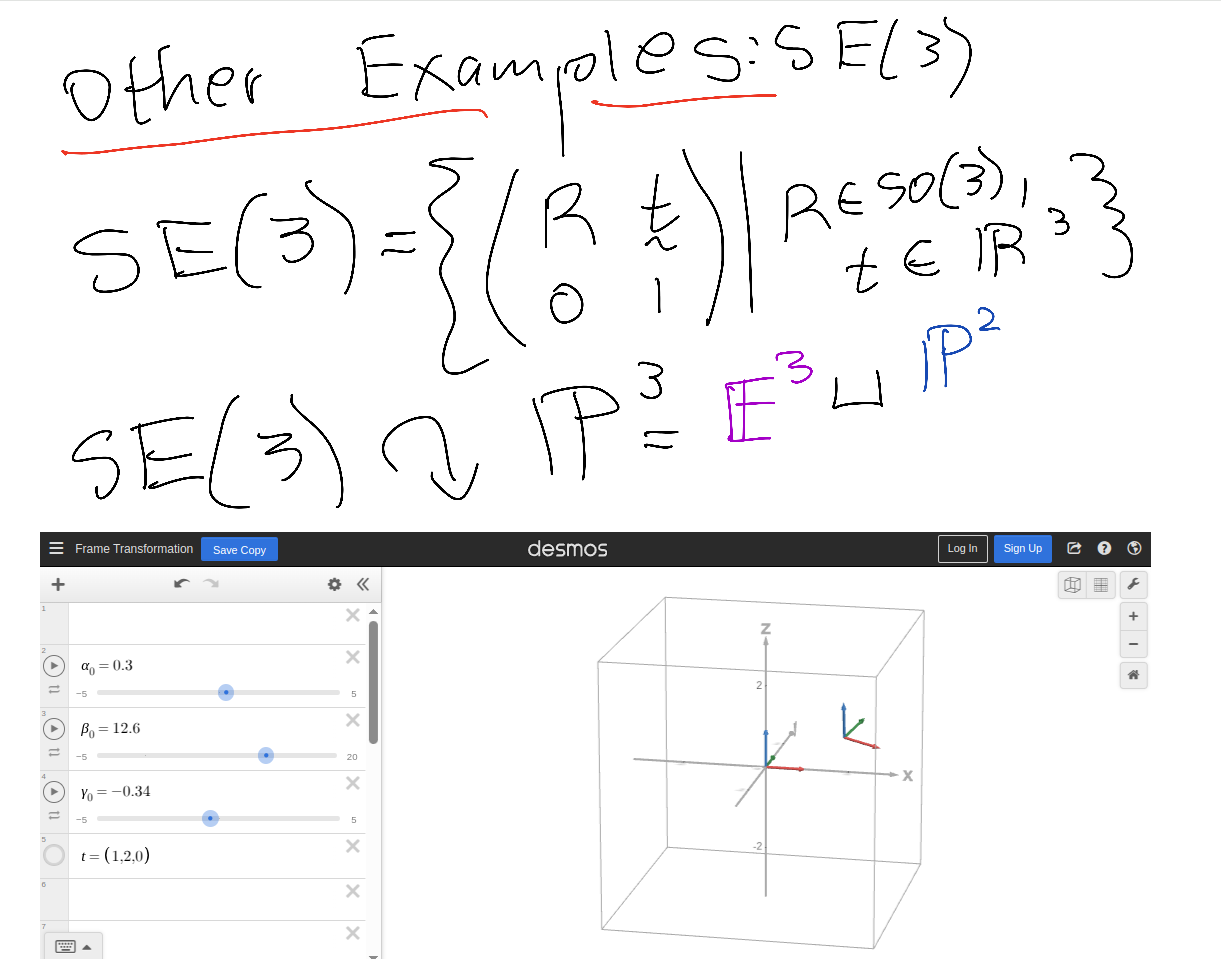 Other Examples: SE(3)
SE(3) = { ( R t ~ 0 1 ) | R ∈ SO(3), t ∈ ℝ³ }
SE(3) ↷ ℙ³ = 𝔼³ ⊔ ℙ²
Frame Transformation Save Copy desmos Log In Sign Up
1
2 α₀ = 0.3
-5 5
3 β₀ = 12.6
-5 20
4 γ₀ = −0.34
-5 5
5 t = (1,2,0)
6
7
z
2
x
-2